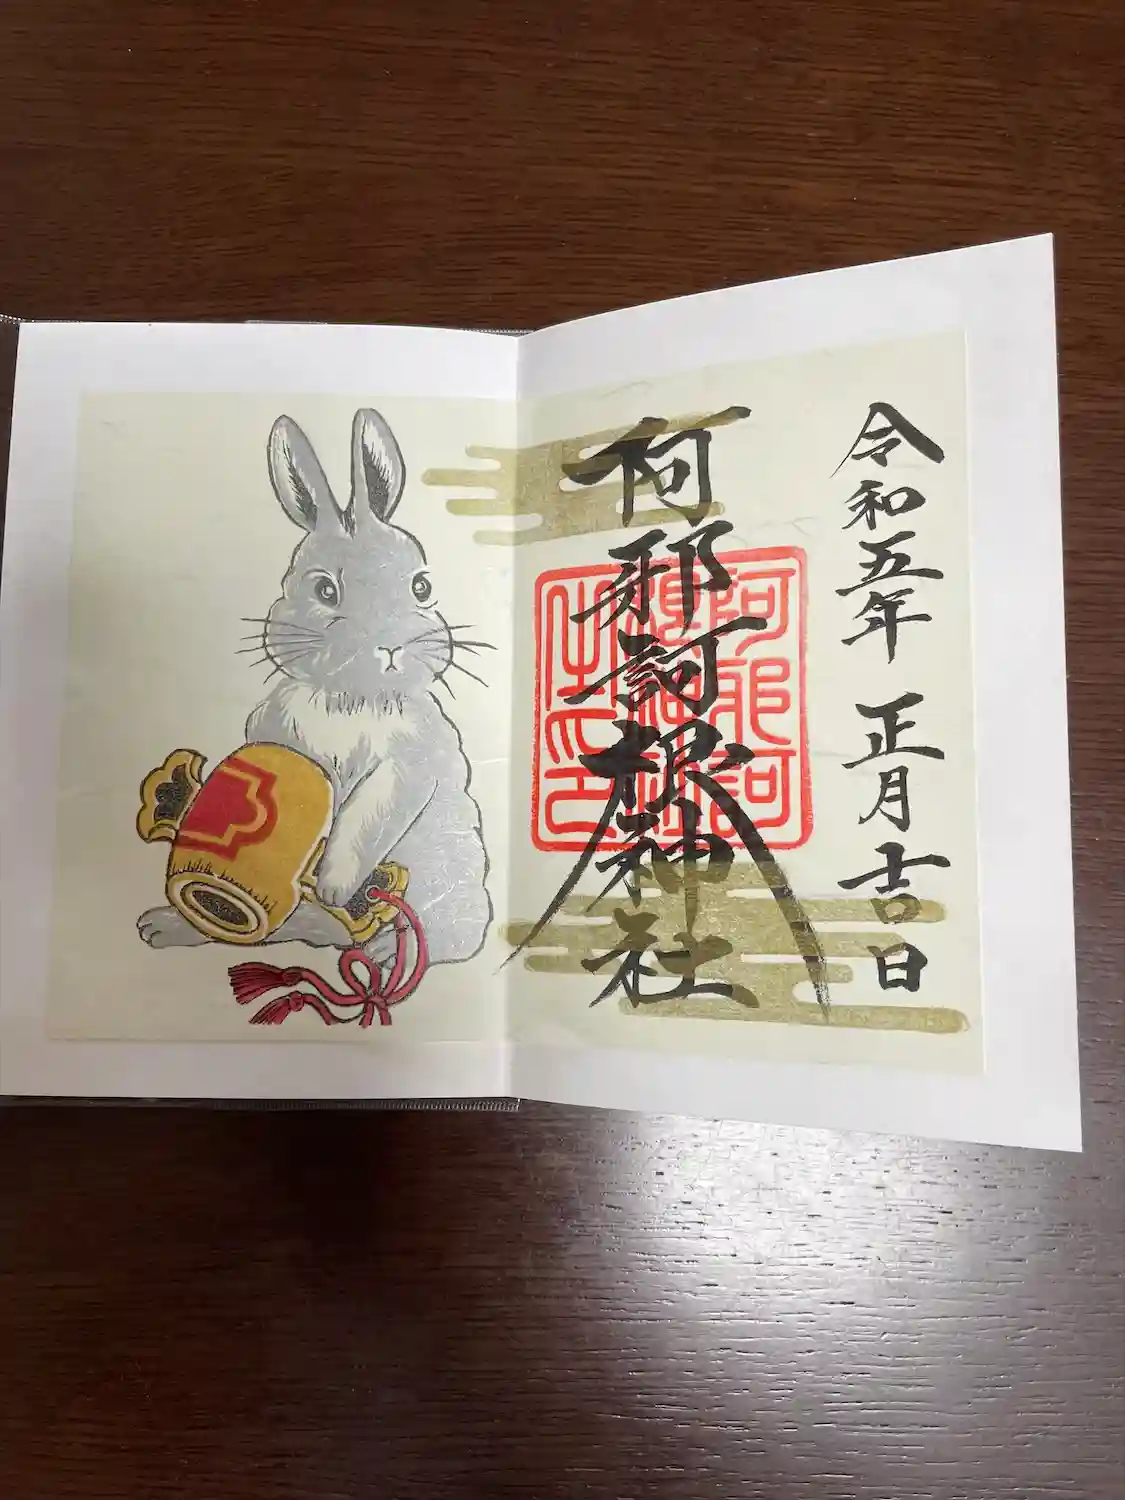 令和五年 正月吉日
阿邪訶根神社
阿邪訶
根神社
之印